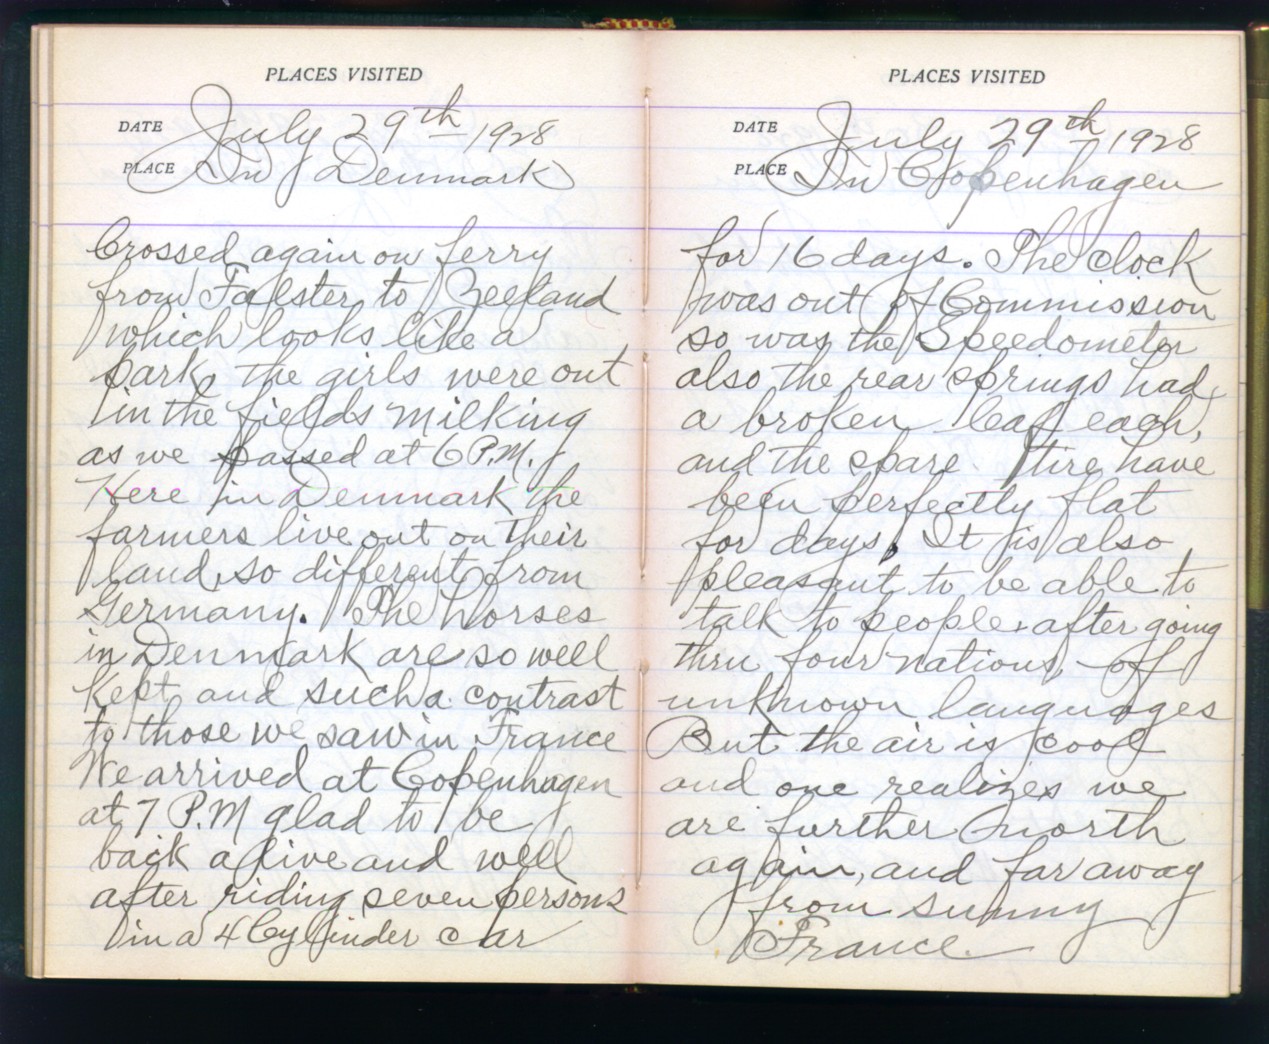 PLACES VISITED
DATE July 29th 1928
PLACE In Denmark
Crossed again on ferry
from Falster to Zeeland
which looks like a
park, the girls were out
in the fields milking
as we passed at 6 P.M.
Here in Denmark the
farmers live out on their
land, so different from
Germany. The horses
in Denmark are so well
kept and such a contrast
to those we saw in France
We arrived at Copenhagen
at 7 P.M glad to be
back alive and well
after riding seven persons
in a 4 Cylinder car
PLACES VISITED
DATE July 29th 1928
PLACE In Copenhagen
for 16 days. The clock
was out of Commission
so was the Speedometer
also the rear springs had
a broken leaf each,
and the spare tire have
been perfectly flat
for days. It is also
pleasant to be able to
talk to people after going
thru four nations of
unknown languages
But the air is cool
and one realizes we
are further north
again, and far away
from sunny
France.